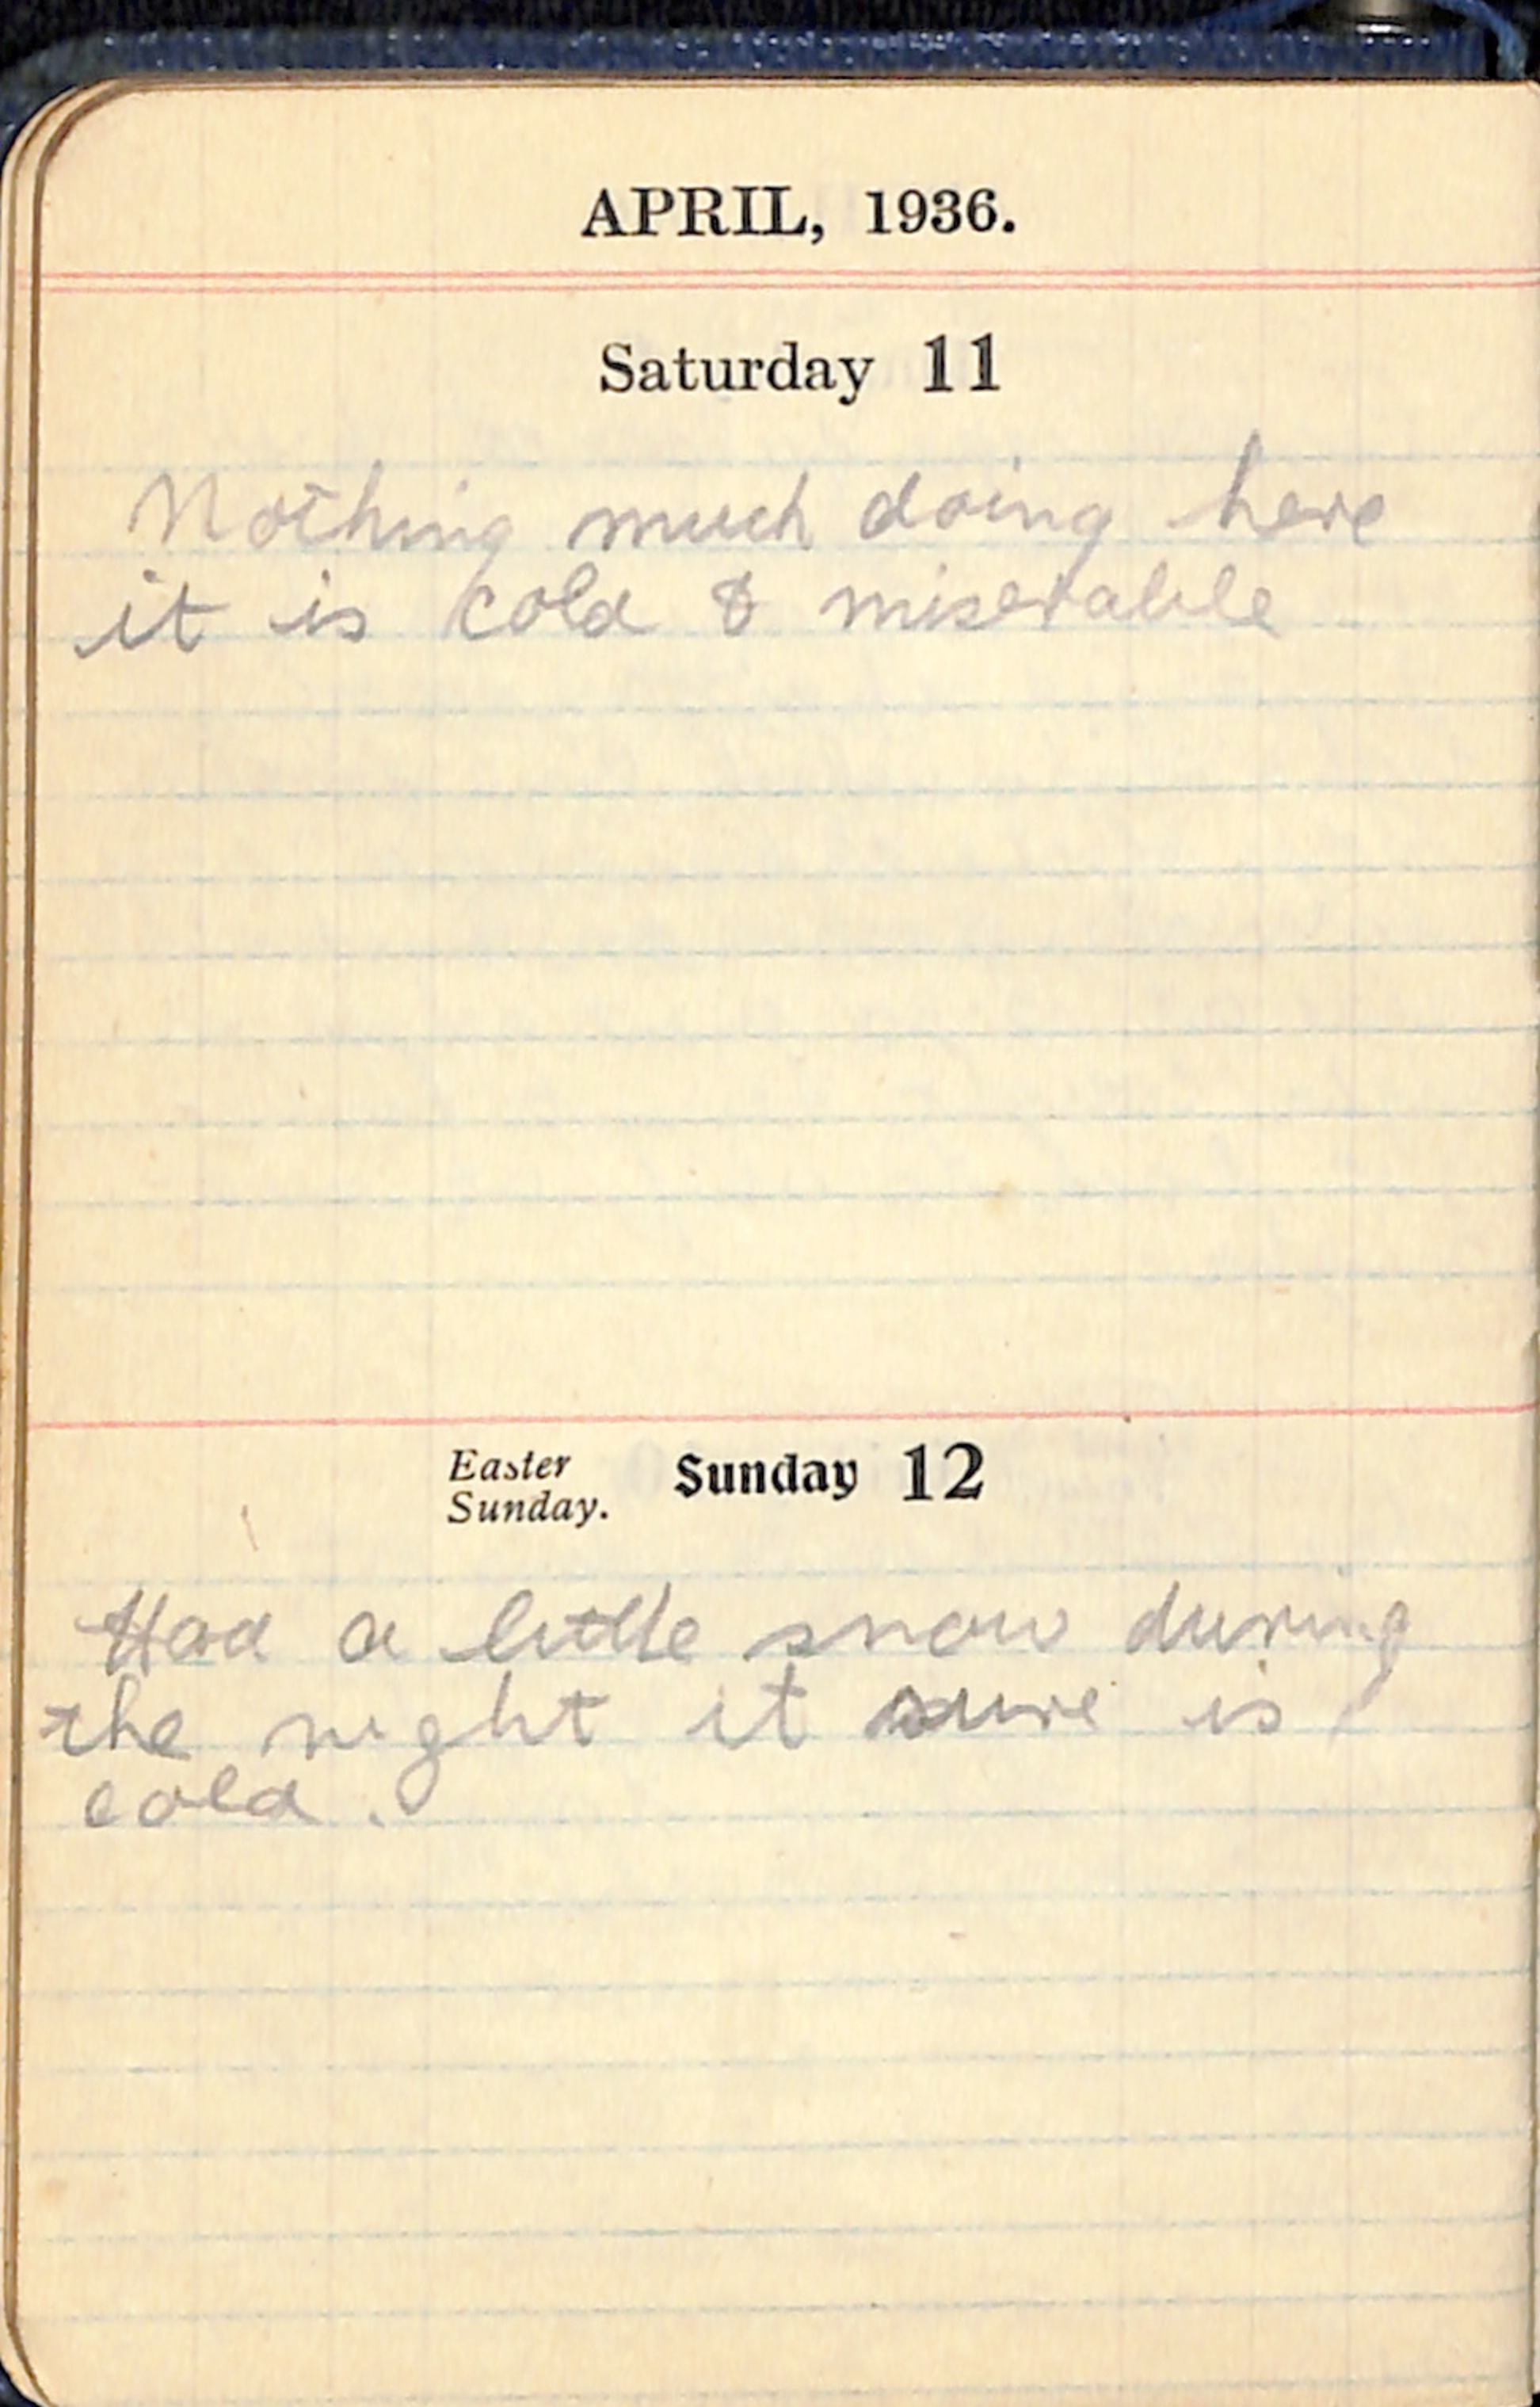 APRIL, 1936.
Saturday 11
Nothing much doing here
it is cold & miserable
Easter
Sunday.
Sunday 12
Had a little snow during
the night it sure is
cold.